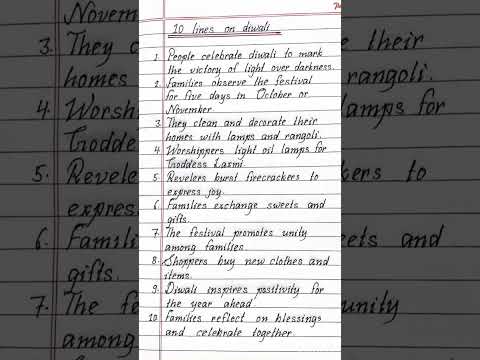 10 lines on diwali
1. People celebrate diwali to mark
the victory of light over darkness.
2. Families observe the festival
for five days in October or
November.
3. They clean and decorate their
homes with lamps and rangoli.
4. Worshippers light oil lamps for
Goddess Laxmi.
5. Revelers burst firecrackers to
express joy.
6. Families exchange sweets and
gifts.
7. The festival promotes unity
among families.
8. Shoppers buy new clothes and
items.
9. Diwali inspires positivity for
the year ahead.
10. Families reflect on blessings
and celebrate together.
Novem
3. They c
homes
4. Worsh
Goddes
5. Revele
express
6. Famili
gifts.
7. The f
among
e their
rangoli.
lamps for
kers to
ets and
unity